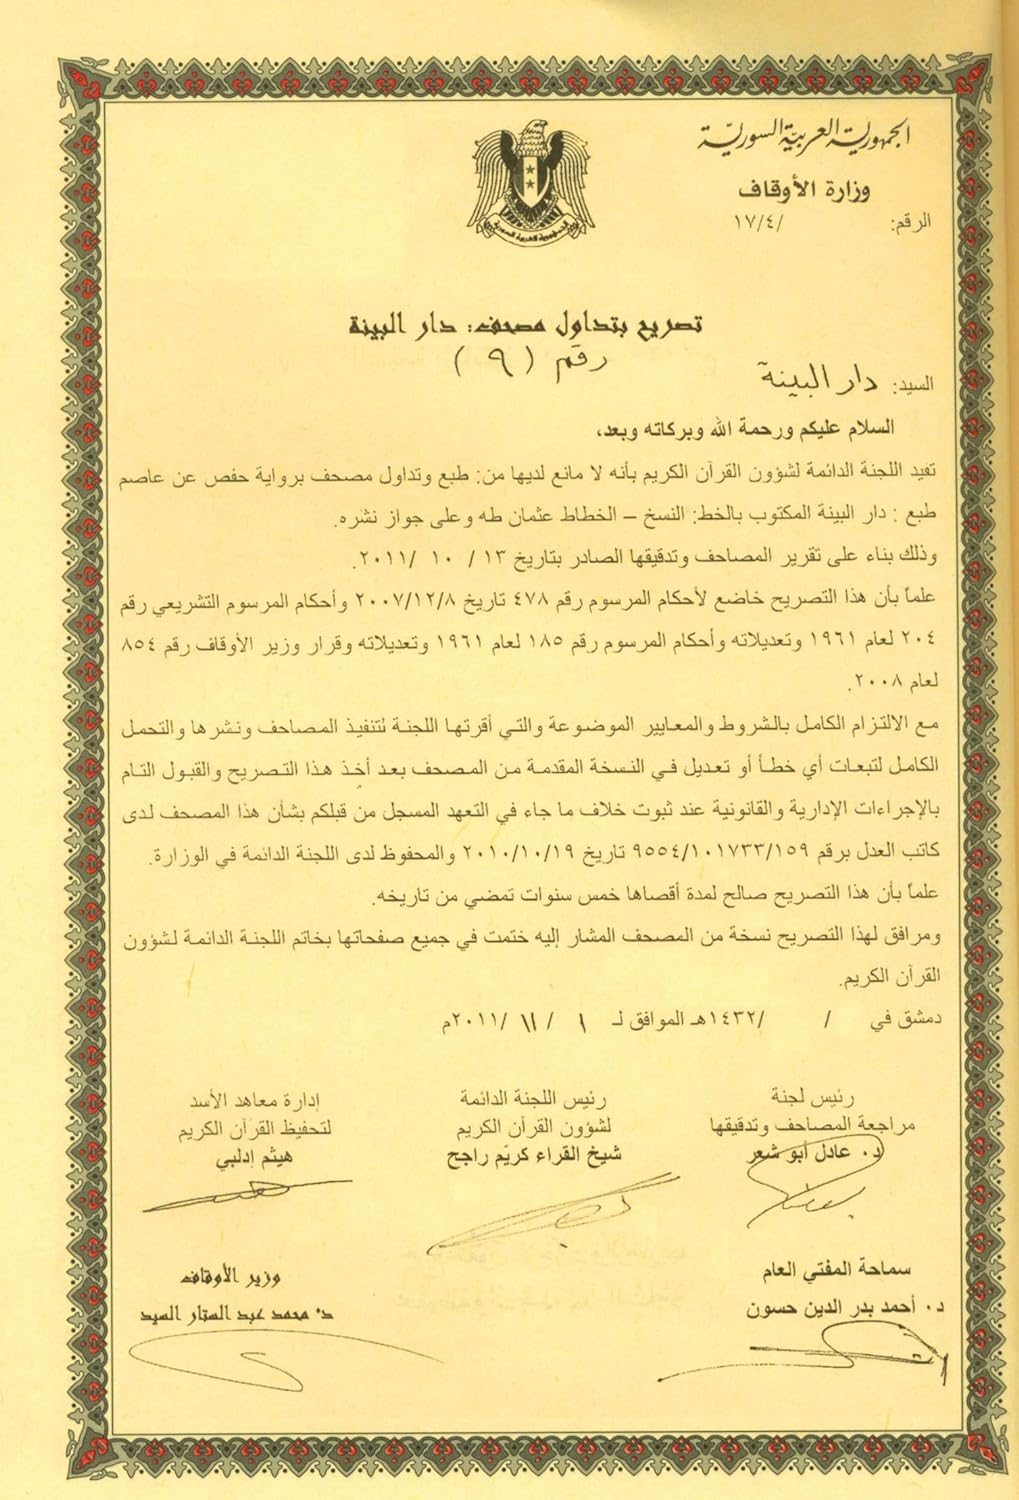 الجمهورية العربية السورية
وزارة الأوقاف
الرقم: /١٧/٤
تصريح بتداول مصحف: دار البينة
رقم (٩)
السيد: دار البينة
السلام عليكم ورحمة الله وبركاته وبعد،
تفيد اللجنة الدائمة لشؤون القرآن الكريم بأنه لا مانع لديها من: طبع وتداول مصحف برواية حفص عن عاصم
طبع : دار البينة المكتوب بالخط: النسخ – الخطاط عثمان طه وعلى جواز نشره.
وذلك بناء على تقرير المصاحف وتدقيقها الصادر بتاريخ ١٣ / ١٠ /٢٠١١.
علماً بأن هذا التصريح خاضع لأحكام المرسوم رقم ٤٧٨ تاريخ ٢٠٠٧/١٢/٨ وأحكام المرسوم التشريعي رقم
٢٠٤ لعام ١٩٦١ وتعديلاته وأحكام المرسوم رقم ١٨٥ لعام ١٩٦١ وتعديلاته وقرار وزير الأوقاف رقم ٨٥٤
لعام ٢٠٠٨.
مع الالتزام الكامل بالشروط والمعايير الموضوعة والتي أقرتها اللجنة لتنفيذ المصاحف ونشرها والتحمل
الكامل لتبعات أي خطأ أو تعديل في النسخة المقدمة من المصحف بعد أخذ هذا التصريح والقبول التام
بالإجراءات الإدارية والقانونية عند ثبوت خلاف ما جاء في التعهد المسجل من قبلكم بشأن هذا المصحف لدى
كاتب العدل برقم ٩٥٥٤/١٠١٧٣٣/١٥٩ تاريخ ٢٠١٠/١٠/١٩ والمحفوظ لدى اللجنة الدائمة في الوزارة.
علماً بأن هذا التصريح صالح لمدة أقصاها خمس سنوات تمضي من تاريخه.
ومرافق لهذا التصريح نسخة من المصحف المشار إليه ختمت في جميع صفحاتها بخاتم اللجنة الدائمة لشؤون
القرآن الكريم.
دمشق في / /١٤٣٢هـ الموافق لـ ١ / ١١ /٢٠١١م
رئيس لجنة
مراجعة المصاحف وتدقيقها
د. عادل أبو شعر
رئيس اللجنة الدائمة
لشؤون القرآن الكريم
شيخ القراء كريّم راجح
إدارة معاهد الأسد
لتحفيظ القرآن الكريم
هيثم إدلبي
سماحة المفتي العام
د. أحمد بدر الدين حسون
وزير الأوقاف
د. محمد عبد الستار السيد